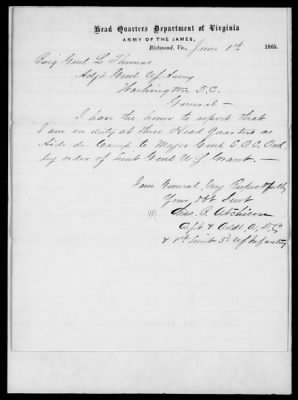 Head Quarters Department of Virginia
ARMY OF THE JAMES,
Richmond, Va., June 1st 1865.
Brig Genl L Thomas
Adjt Genl U.S. Army
Washington D.C.
General—
I have the honor to report that
I am on duty at these Head Quarters as
Aide de Camp to Major Genl E.O.C. Ord
by order of Lieut Genl U.S. Grant.—
I am General Very Respectfully
Your Obt Servt
Chas. B. Atchison
Capt & Addl A.D.C.
& 1st Lieut 3d US Infantry